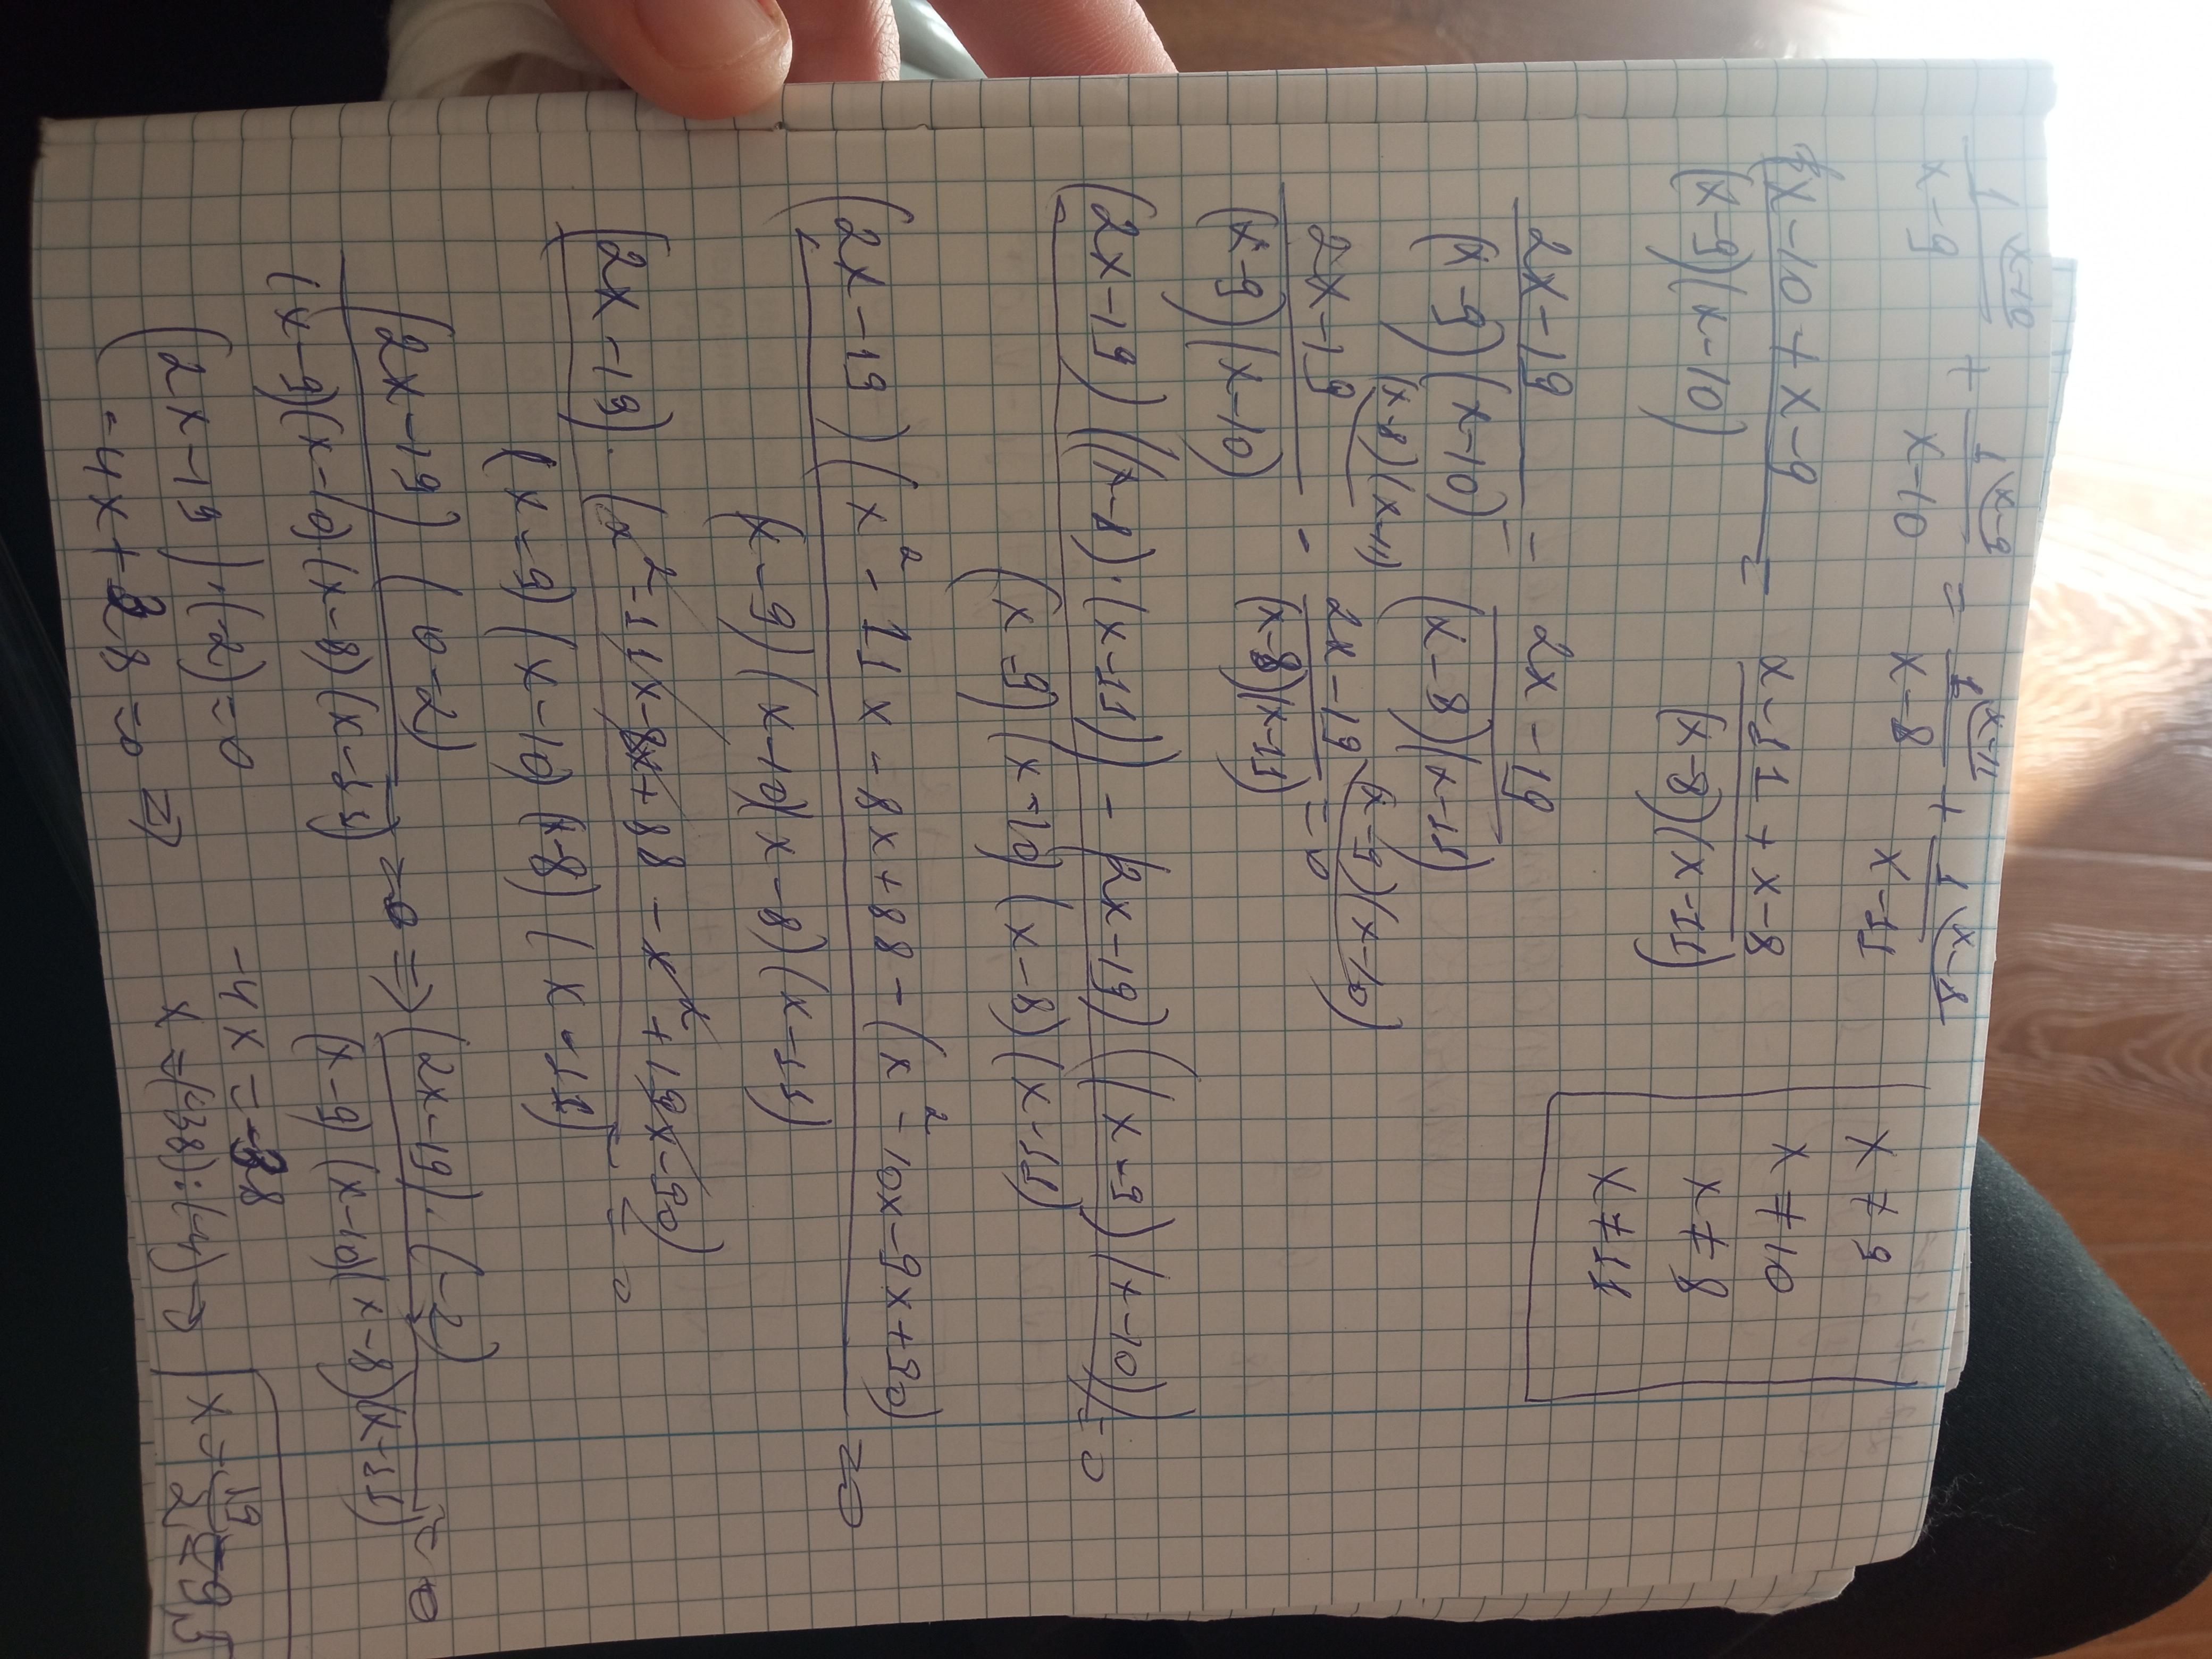 1 (x-10 / x-9 + 1 (x-9 / x-10 = 1 (x-11 / x-8 + 1 (x-8 / x-11
x ≠ 9
x ≠ 10
x ≠ 8
x ≠ 11
x-10+x-9 / (x-9)(x-10) = x-11+x-8 / (x-8)(x-11)
2x-19 / (x-9)(x-10) - 2x-19 / (x-8)(x-11)
2x-19 (x-8)(x-11) / (x-9)(x-10) - 2x-19 (x-9)(x-10) / (x-8)(x-11) = 0
(2x-19)((x-8)·(x-11)) - (2x-19)((x-9)(x-10)) / (x-9)(x-10)(x-8)(x-11) = 0
(2x-19)(x²-11x-8x+88-(x²-10x-9x+90) / (x-9)(x-10)(x-8)(x-11) = 0
(2x-19)·(x²-11x-8x+88-x²+19x-90) / (x-9)(x-10)(x-8)(x-11) = 0
(2x-19)(0-2) / (x-9)(x-10)(x-8)(x-11) = 0 => (2x-19)·(-2) / (x-9)(x-10)(x-8)(x-11) = 0
(2x-19)·(-2)=0
-4x = -38
-4x+38=0 =>
x=(-38):(-4) → x = 19/2 = 9,5